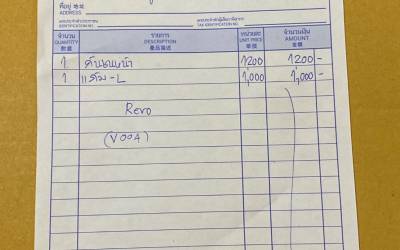 ที่อยู่ 地址
ADDRESS
เลขประจำตัวประชาชน เลขประจำตัวผู้เสียภาษีอากร
IDENTIFICATION NO. TAX IDENTIFICATION NO.
จำนวน รายการ หน่วยละ จำนวนเงิน
QUANTITY DESCRIPTION UNIT PRICE AMOUNT
數量 產品描述 單價 金額
1 1200 1200 -
1 -L 1,000 1,000 -
Revo
(VOOA)